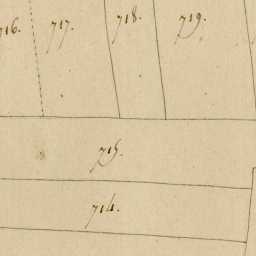 716. 717. 718. 719.
715.
714.